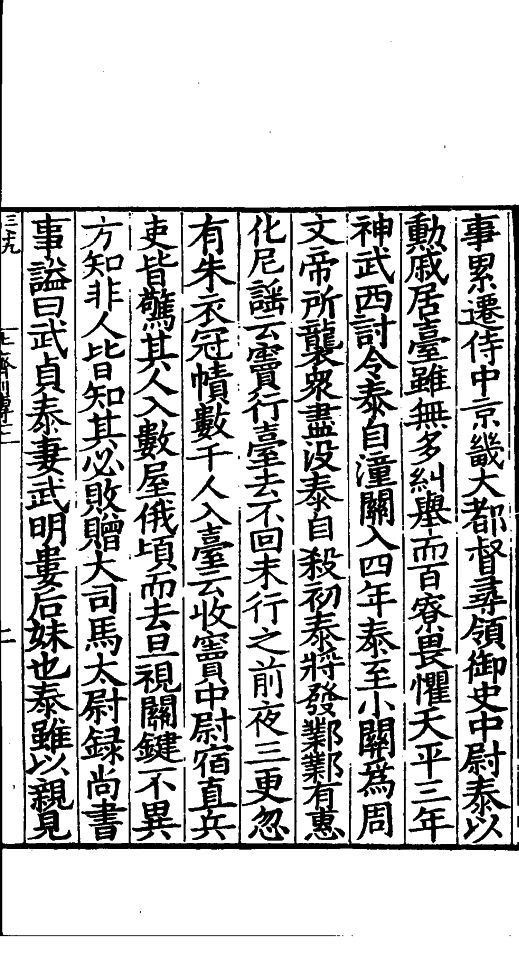 事累遷侍中京畿大都督尋領御史中尉泰以
勳戚居臺雖無多糾舉而百寮畏懼天平三年
神武西討令泰自潼關入四年泰至小關爲周
文帝所襲衆盡没泰自殺初泰將發鄴鄴有惠
化尼謡云竇行臺去不回未行之前夜三更忽
有朱衣冠幘數千人入臺云收竇中尉宿直兵
吏皆驚其人入數屋俄頃而去旦視關鍵不異
方知非人皆知其必敗贈大司馬太尉録尚書
事謚曰武貞泰妻武明婁后妹也泰雖以親見
二